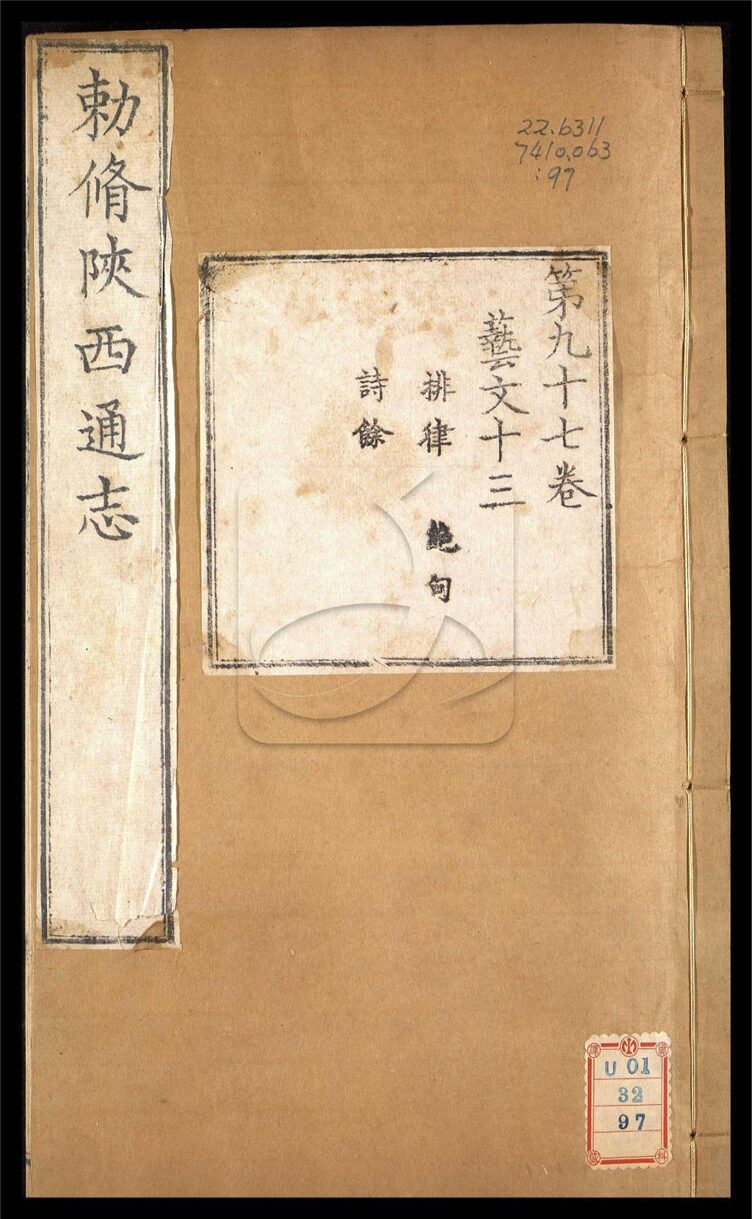 勅脩陝西通志
22.6311
7410.063
:97
第九十七卷
藝文十三
排律 絶句
詩餘
U 01
32
97